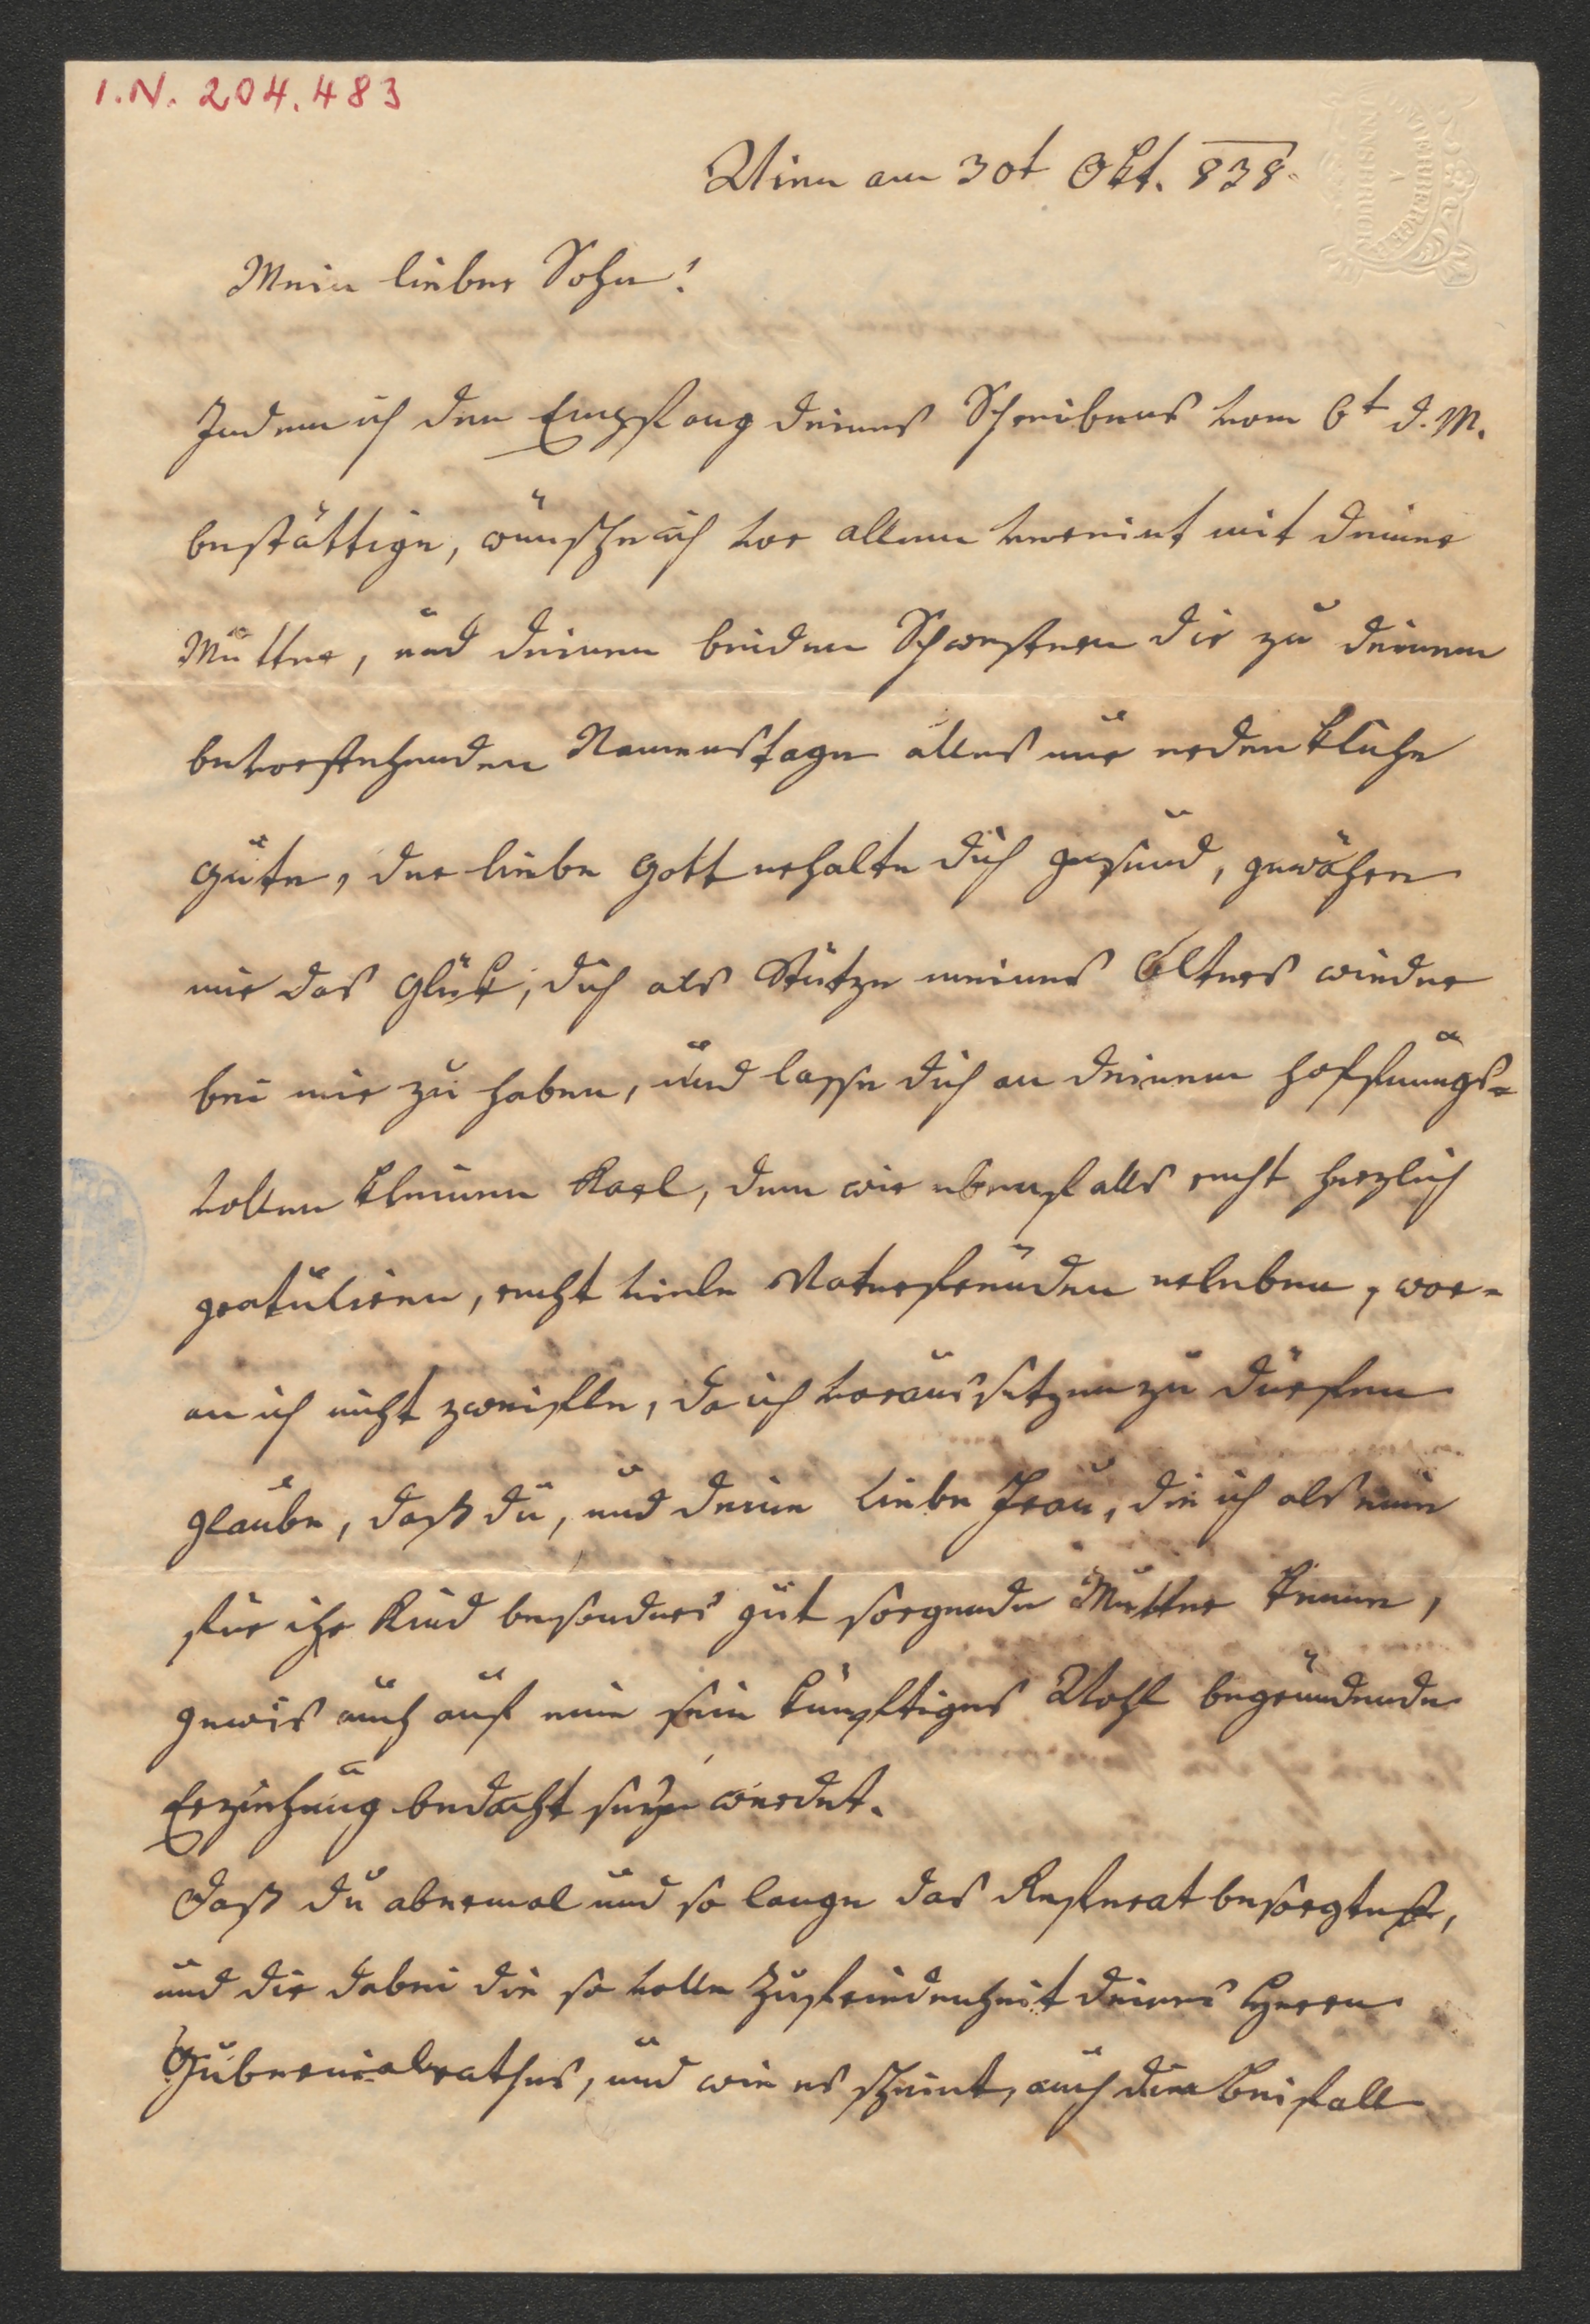 I.N. 204.483
Wien am 30t Okt. 838.
Mein lieber Sohn!
Indem ich den Empfang deines Schreibens vom 6t d. M.
bestättige, wünsche ich vor allem vereint mit deiner
Mutter, und deinen beiden Schwestern dir zu deinem
bevorstehenden Namenstage alles nur erdenkliche
Gute, der liebe Gott erhalte dich gesund, gewähre
mir das Glük, dich als Stütze meines Alters wieder
bei mir zu haben, und lasse dich an deinem hoffnungs-
vollen kleinen Karl, dem wir ebenfalls recht herzlich
gratuliren, recht viele Vaterfreuden erleben, wor-
an ich nicht zweifle, da ich voraussetzen zu dürfen
glaube, daß du, und deine liebe Frau, die ich als eine
für ihr Kind besonders gut sorgende Mutter kenne,
gewis auch auf eine sein künftiges Wohl begründende
Erziehung bedacht seyn werdet.
Daß du abermal und so lange das Referat besorgtest,
und dir dabei die so volle Zufriedenheit deines Herrn
Gubernialrathes, und wie es scheint, auch den Beifall